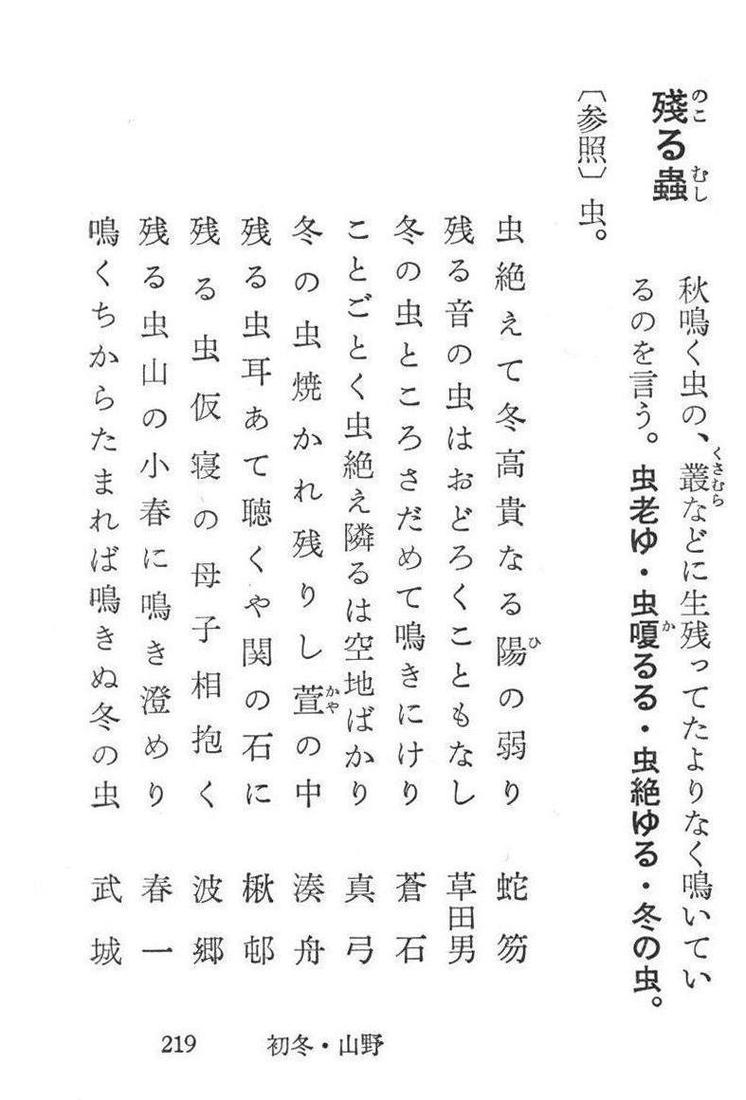 残る蟲
のこ むし
秋鳴く虫の、叢などに生残ってたよりなく鳴いてい
くさむら
るのを言う。虫老ゆ・虫嗄るる・虫絶ゆる・冬の虫。
か
〔参照〕虫。
虫絶えて冬高貴なる陽の弱り 蛇笏
ひ
残る音の虫はおどろくこともなし 草田男
冬の虫ところさだめて鳴きにけり 蒼石
ことごとく虫絶え隣るは空地ばかり 真弓
冬の虫焼かれ残りし萱の中 湊舟
かや
残る虫耳あて聴くや関の石に 楸邨
残る虫仮寝の母子相抱く 波郷
残る虫山の小春に鳴き澄めり 春一
鳴くちからたまれば鳴きぬ冬の虫 武城
219 初冬・山野